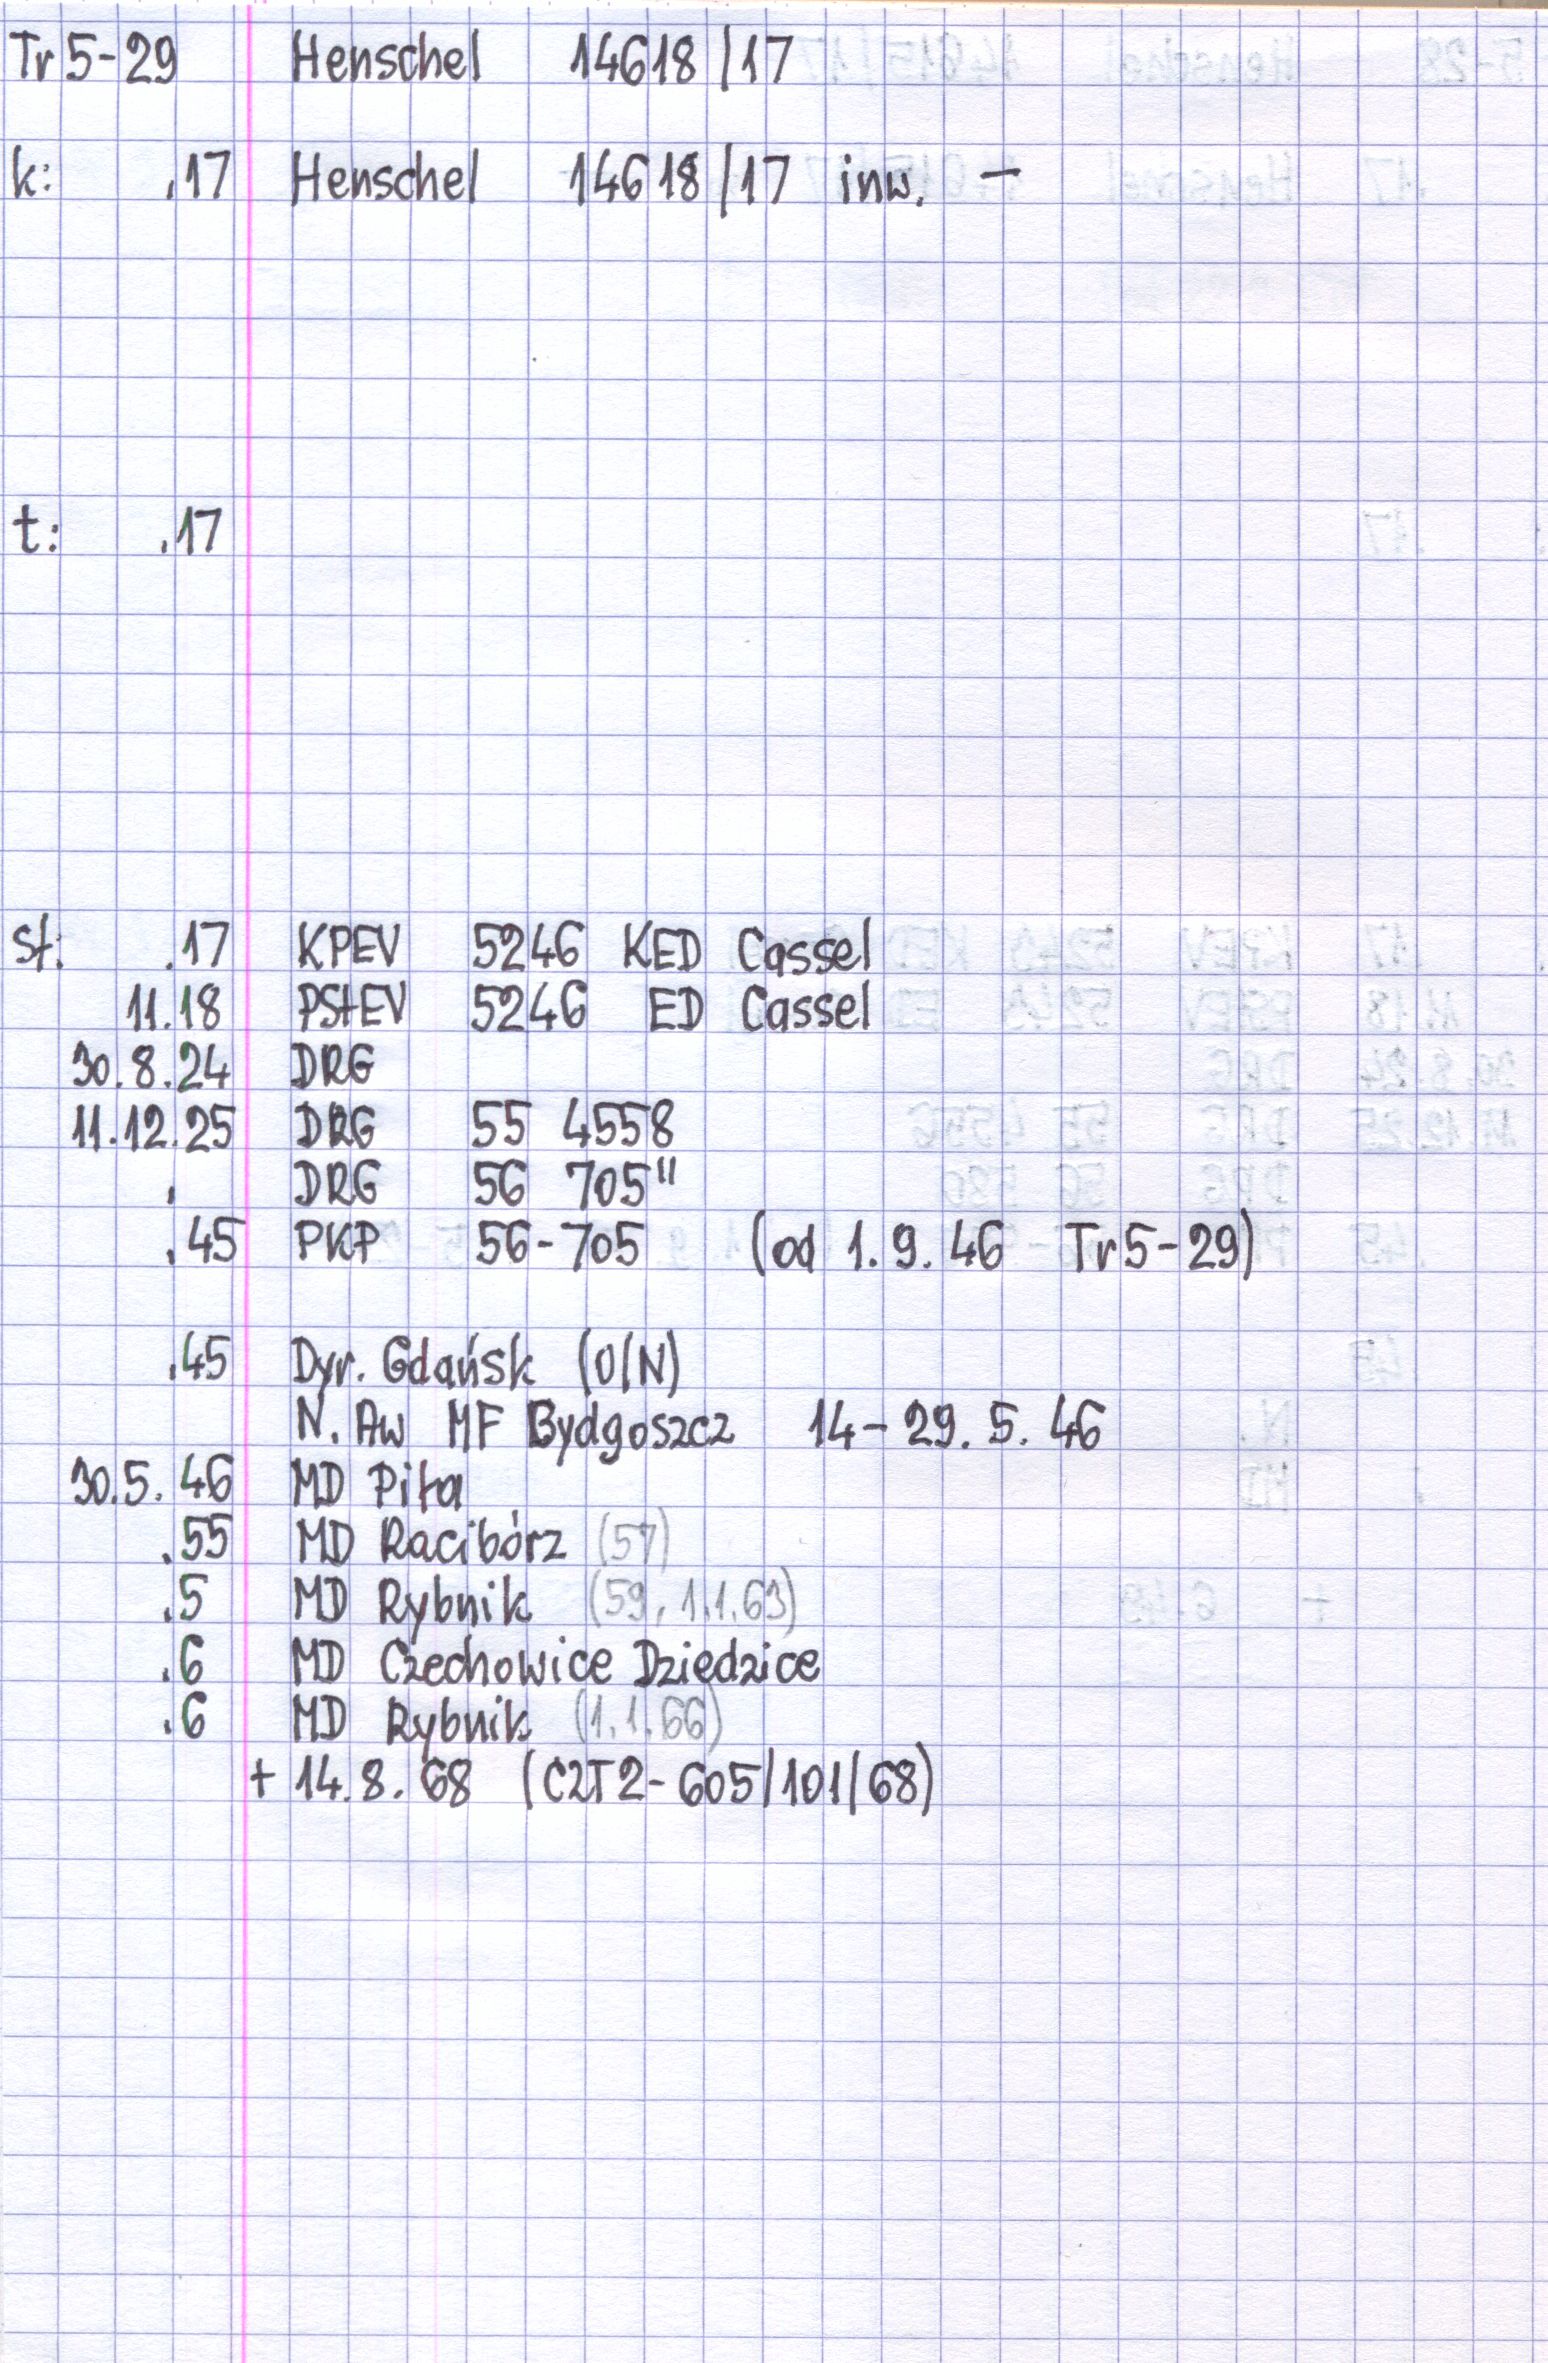 Tr 5-29 Henschel 14618/17
k: .17 Henschel 14618/17 inw. –
t: .17
st: .17 KPEV 5246 KED Cassel
11.18 PStEV 5246 ED Cassel
30.8.24 DRG
11.12.25 DRG 55 4558
. DRG 56 705"
.45 PKP 56-705 (od 1.9.46 Tr5-29)
.45 Dyr. Gdańsk (O/N)
N. Aw MF Bydgoszcz 14-29.5.46
30.5.46 MD Piła
.55 MD Racibórz (57)
.5 MD Rybnik (59, 1.1.63)
.6 MD Czechowice Dziedzice
.6 MD Rybnik (1.1.66)
+ 14.8.68 (C2T2-605/101/68)